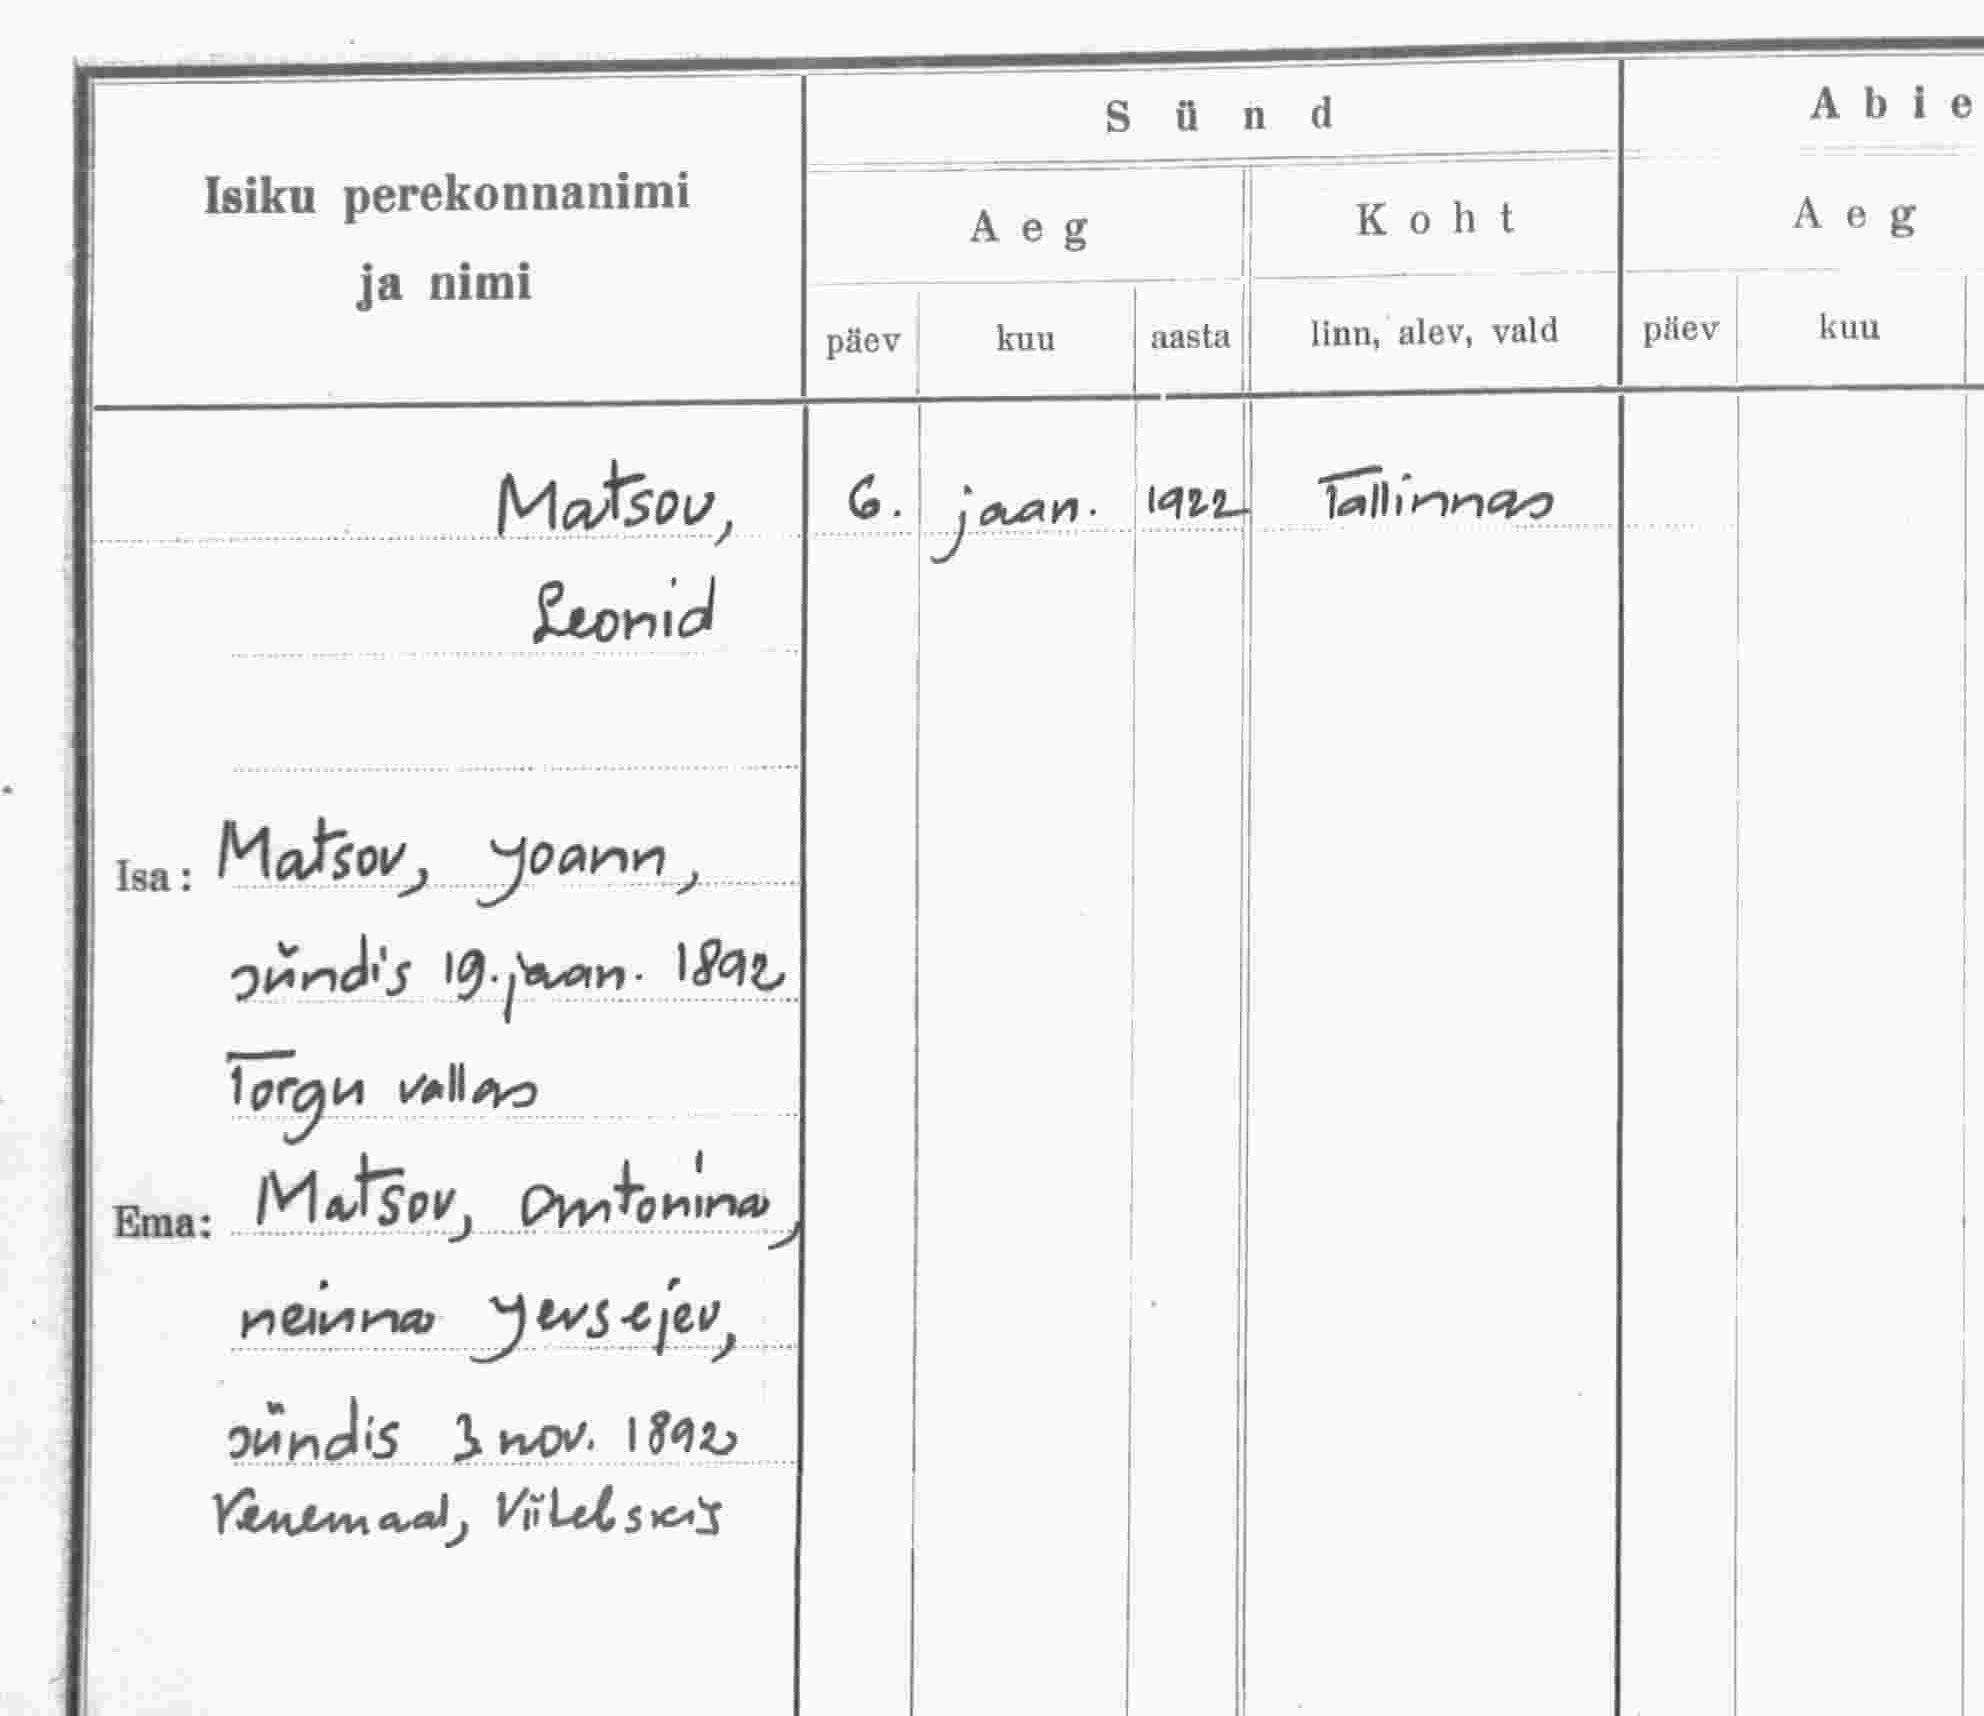 Sünd
Abie
Isiku perekonnanimi
ja nimi
Aeg
Koht
Aeg
päev
kuu
aasta
linn, alev, vald
päev
kuu
Matsov, 6. jaan. 1922 Tallinnas
Leonid
Isa: Matsov, Joann,
sündis 19. jaan. 1892
Torgu vallas
Ema: Matsov, Antonina,
neinna Jevsejev,
sündis 3 nov. 1892
Venemaal, Viitebskis